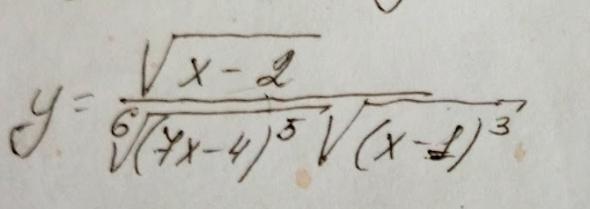 y = √(x - 2) / (⁶√((7x - 4)⁵) √((x - 1)³))